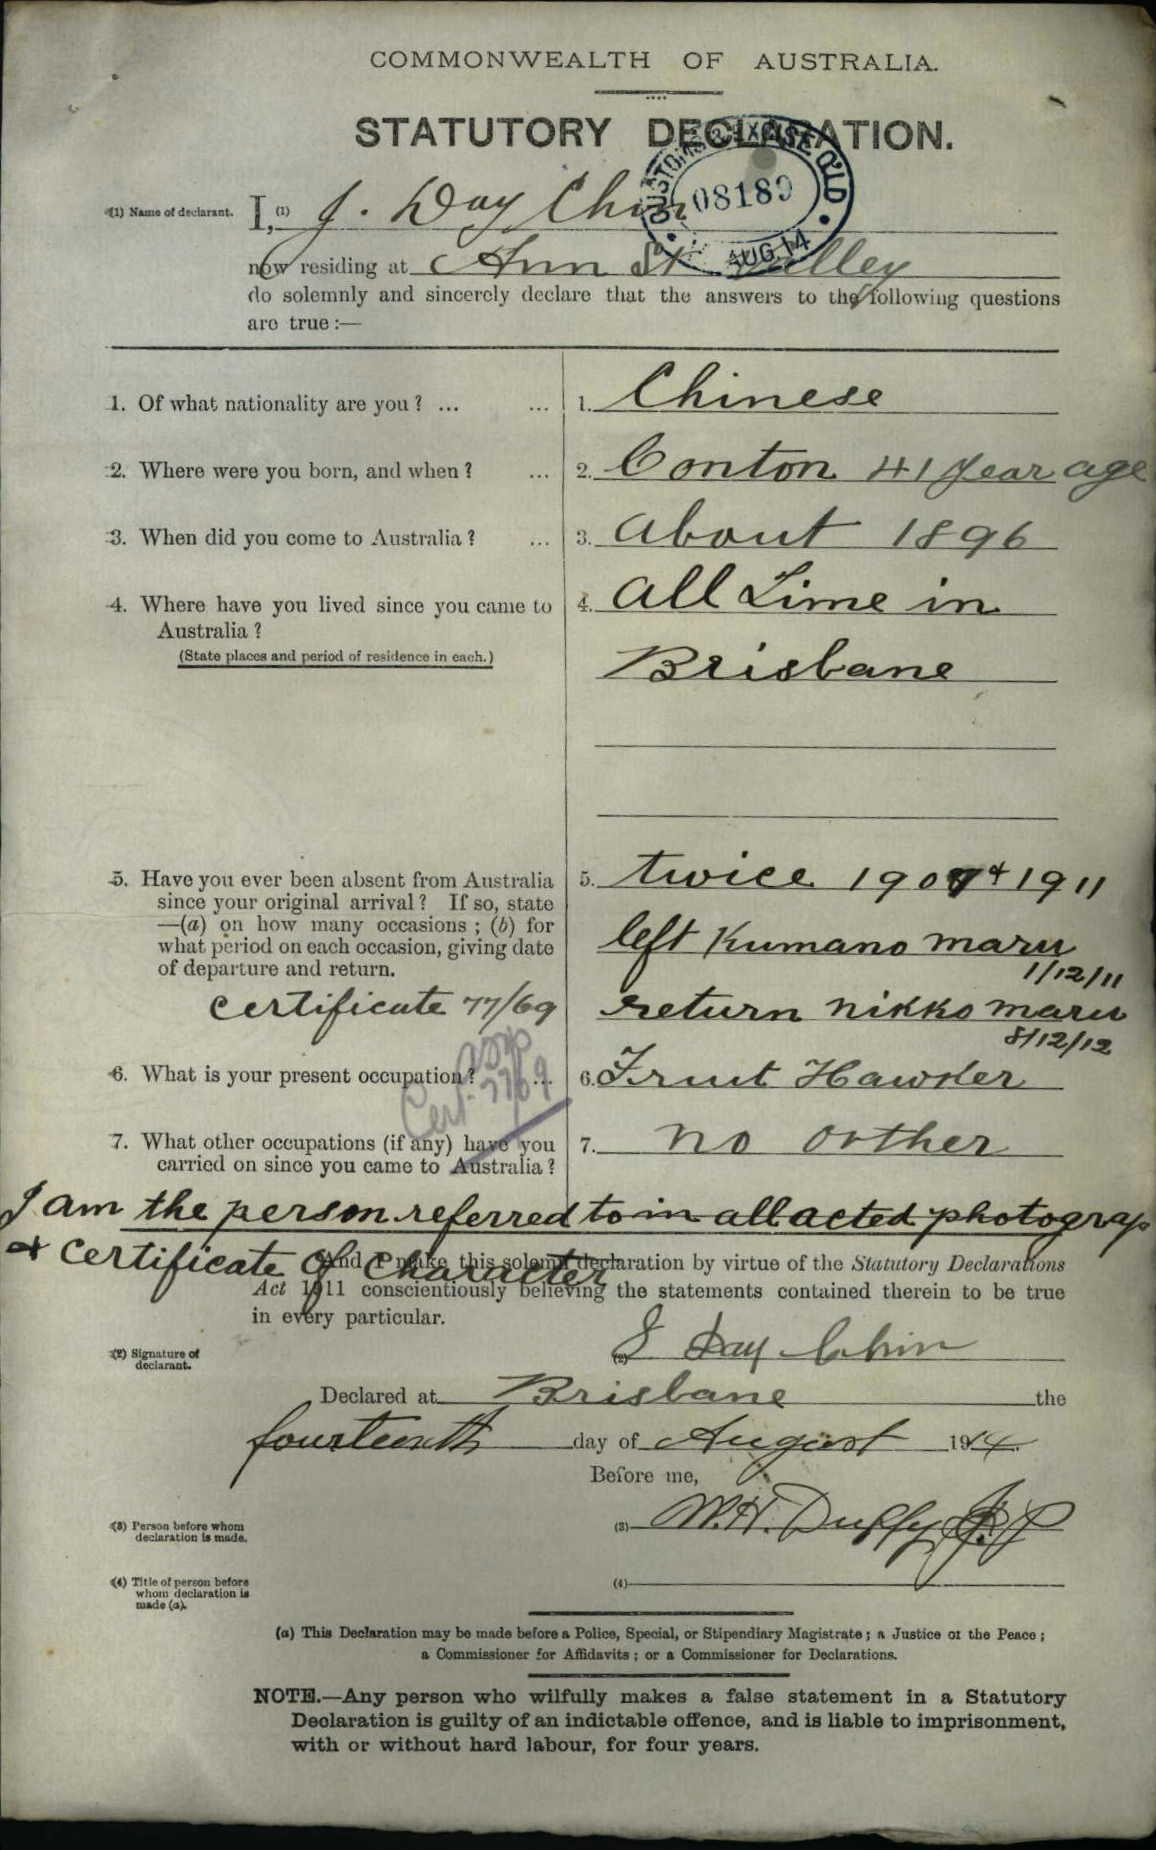 COMMONWEALTH OF AUSTRALIA.
STATUTORY DECLARATION.
CUSTOMS & EXCISE Q'LD
08189
AUG. 14
(1) Name of declarant. I, (1) J. Day Chin
now residing at Ann St Valley
do solemnly and sincerely declare that the answers to the following questions
are true :—
1. Of what nationality are you ? ... ... 1. Chinese
2. Where were you born, and when ? ... 2. Conton 41 year age
3. When did you come to Australia ? ... 3. about 1896
4. Where have you lived since you came to 4. all Time in
Australia ?
(State places and period of residence in each.)
Brisbane
5. Have you ever been absent from Australia 5. twice 1907 & 1911
since your original arrival ? If so, state
—(a) on how many occasions ; (b) for left Kumano maru
what period on each occasion, giving date 1/12/11
of departure and return.
certificate 77/69 return nikko maru
8/12/12
6. What is your present occupation ? ... 6. Fruit Hawker
Cert. 77/69
7. What other occupations (if any) have you 7. no orther
carried on since you came to Australia ?
I am the person referred to in all acted photograp
& certificate of Character
And I make this solemn declaration by virtue of the Statutory Declarations
Act 1911 conscientiously believing the statements contained therein to be true
in every particular.
(2) Signature of
declarant.
(2) J Day Chin
Declared at Brisbane the
fourteenth day of August 1914.
Before me,
(3) Person before whom
declaration is made.
(3) W. H. Duffy J.P
(4) Title of person before
whom declaration is
made (a).
(4)
(a) This Declaration may be made before a Police, Special, or Stipendiary Magistrate ; a Justice of the Peace ;
a Commissioner for Affidavits ; or a Commissioner for Declarations.
NOTE.—Any person who wilfully makes a false statement in a Statutory
Declaration is guilty of an indictable offence, and is liable to imprisonment,
with or without hard labour, for four years.